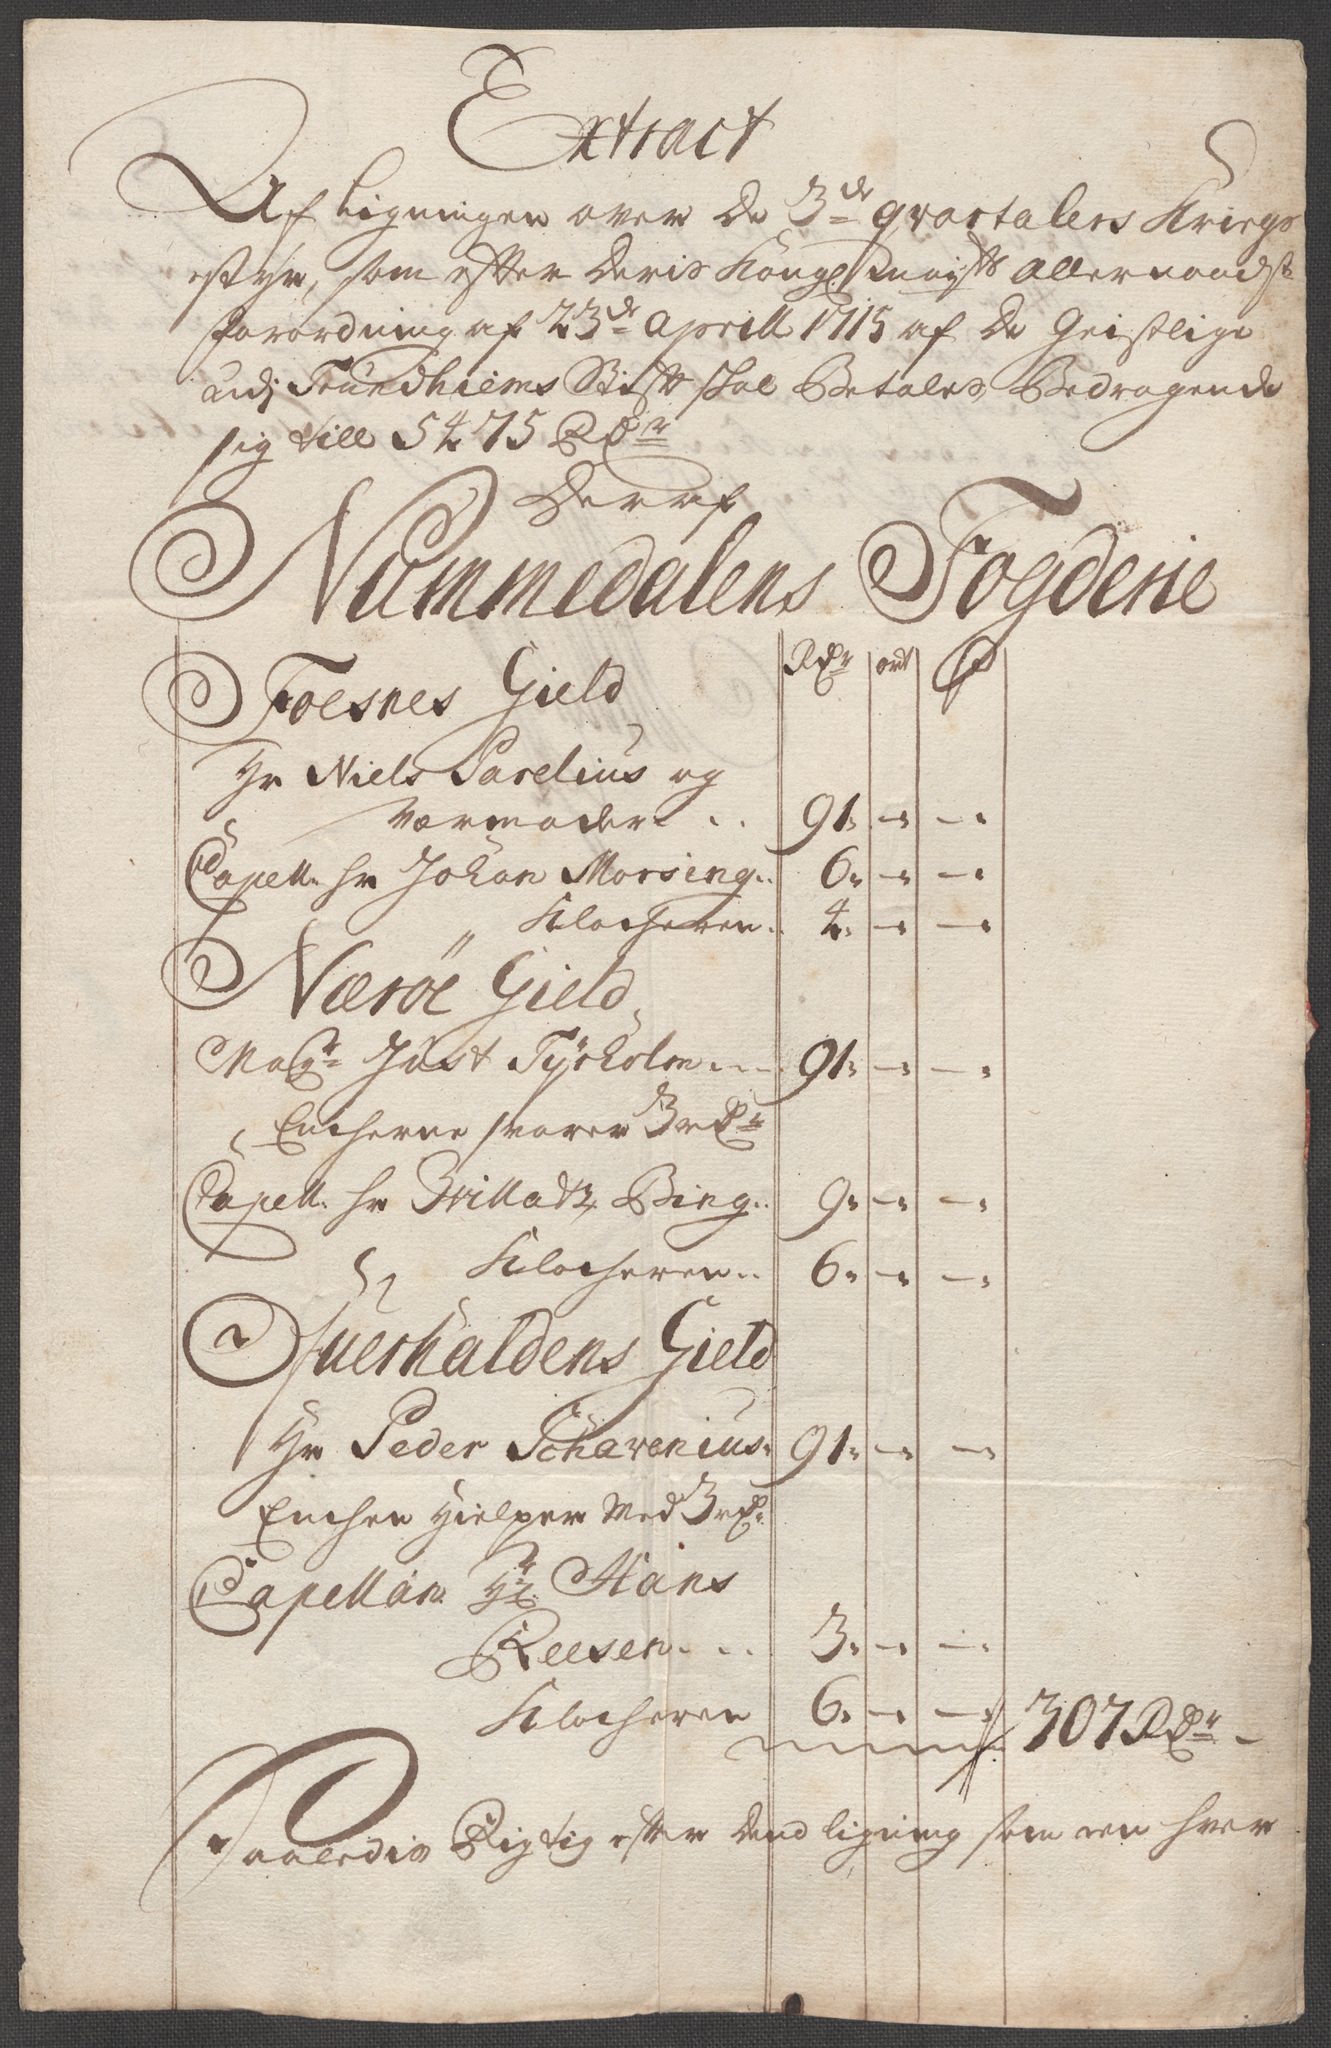 Extract
Af Ligningen over De 3de qvartalers Kriegs
styr, som efter Deris Kongl Mayts Allernaadst
forordning af 23de Aprill 1715 af De Geistlige
udj Trundhiems Stift skal Betales, Bedragende
sig till 5475 Rdr
Deraf
Nummedalens Fogderie
Rdr ort ß
Foesnes Gield
Hr Niels Parelius og
Vermoder .. 91 - -
Capell. hr Johan Morsing.. 6 - -
Klocheren. 4 - -
Nærøe Gield
Magr Just Tyrholm ... 91 - -
Encherne svarer 3 rdr
Capell. hr Brillatz Bing.. 9 - -
Klocheren.. 6 - -
Ofuerhaldens Gield
Hr Peder Schavenius. 91 - -
Enchen hielper Med 3 rd.
Capellan Hr Hans
Reesen. .. 3 - -
Klocheren 6 - - 307 Rdr -
Saaledis Rigtig efter Dend ligning som een hver